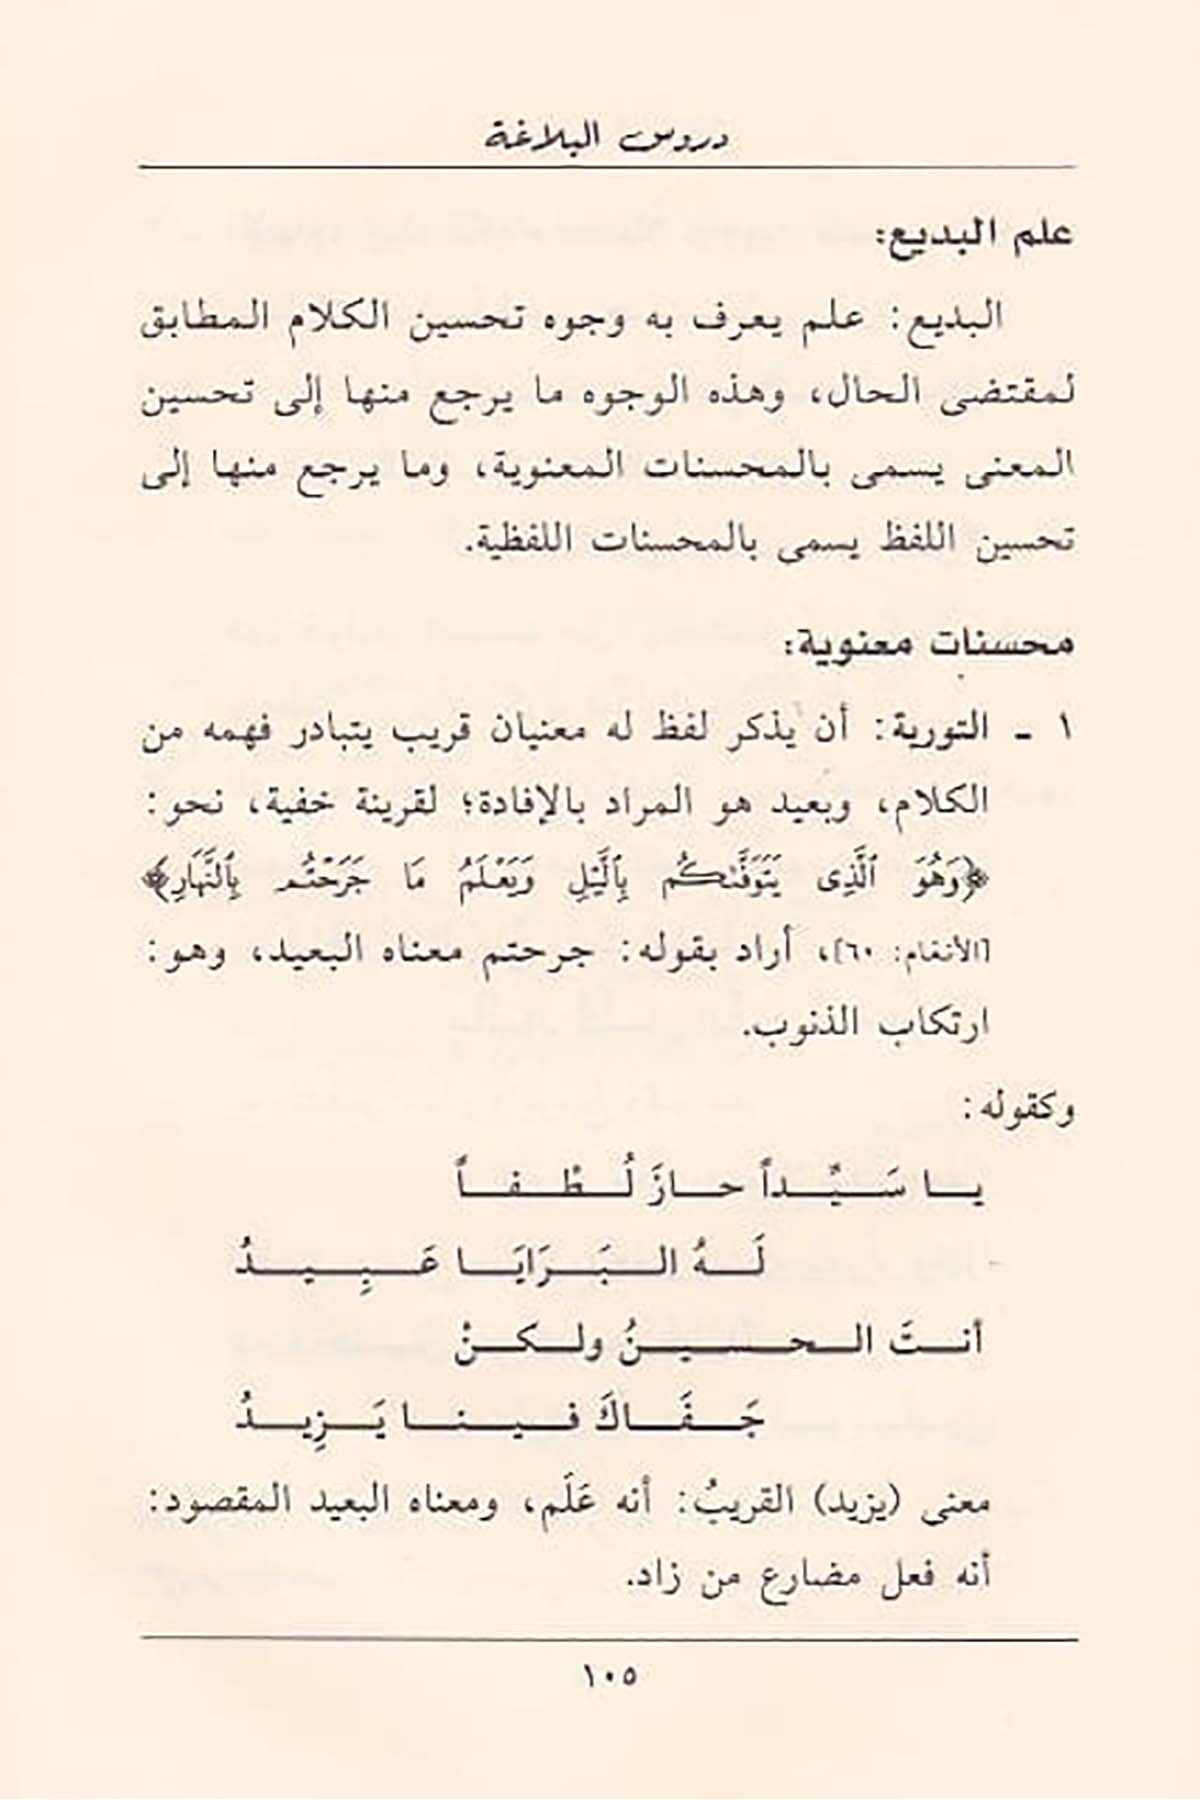 دروس البلاغة
علم البديع:
البديع: علم يعرف به وجوه تحسين الكلام المطابق
لمقتضى الحال، وهذه الوجوه ما يرجع منها إلى تحسين
المعنى يسمى بالمحسنات المعنوية، وما يرجع منها إلى
تحسين اللفظ يسمى بالمحسنات اللفظية.
محسنات معنوية:
١ - التورية: أن يذكر لفظ له معنيان قريب يتبادر فهمه من
الكلام، وبعيد هو المراد بالإفادة؛ لقرينة خفية، نحو:
﴿وَهُوَ ٱلَّذِى يَتَوَفَّىٰكُم بِٱلَّيْلِ وَيَعْلَمُ مَا جَرَحْتُم بِٱلنَّهَارِ﴾
[الأنعام: ٦٠]، أراد بقوله: جرحتم معناه البعيد، وهو:
ارتكاب الذنوب.
وكقوله:
يا سَيِّداً حازَ لُطْفاً
لَهُ البَرَايَا عَبِيدُ
أنتَ الحسينُ ولكنْ
جَفَاكَ فينا يَزِيدُ
معنى (يزيد) القريبُ: أنه عَلَم، ومعناه البعيد المقصود:
أنه فعل مضارع من زاد.
١٠٥